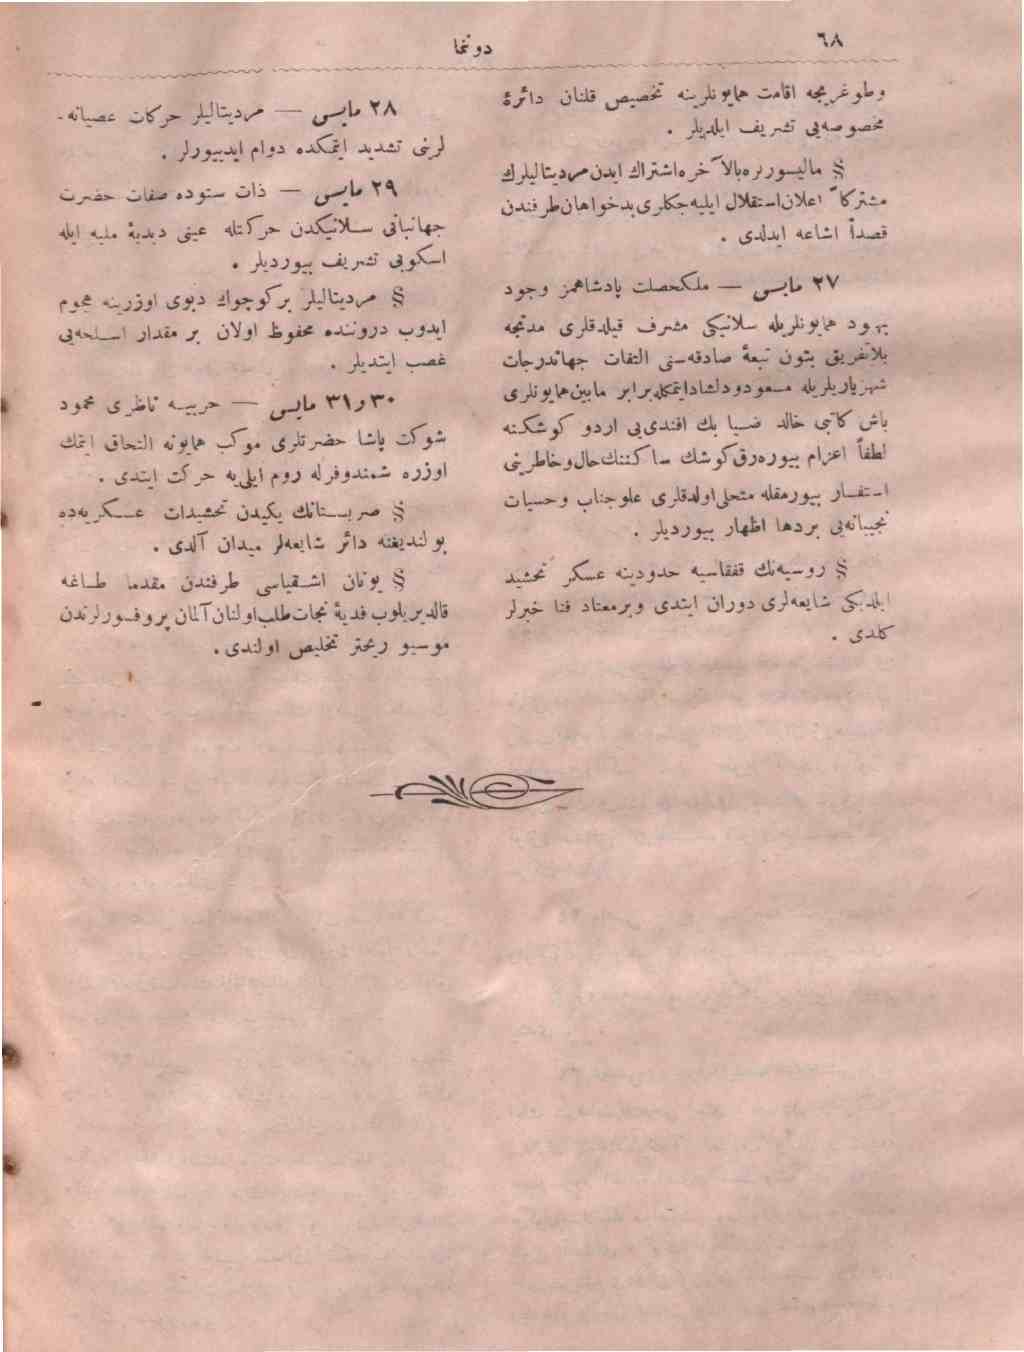 ٦٨
دونما
وطوغریجه اقامت همایونلرینه تخصیص قلنان دائرهٔ
مخصوصه‌یی تشریف ایلدیلر .
§ مالیسورلره بالآخره اشتراك ایدن مردیتالیلرك
مشترکاً اعلان استقلال ایلیه‌جکلری بدخواهان طرفندن
قصداً اشاعه ایدلدی .
٢٧ مایس — ملکخصلت پادشاهمز وجود
بهبود همایونلریله سلانیکی مشرف قیلدقلری مدتجه
بلاتفریق بتون تبعهٔ صادقه‌سنی التفات جهاندرجات
شهریاریلریله مسعود ودلشاد ایتمکله برابر مابین همایونلری
باش کاتبی خالد ضیا بك افندی‌یی اردو کوشکنه
لطفاً اعزام بیوره‌رق کوشك ساکننك حال وخاطرینی
استفسار بیورمقله متحلی اولدقلری علو جناب وحسیات
نجیبانه‌یی بردها اظهار بیوردیلر .
§ روسیه‌نك قفقاسیه حدودینه عسکر تحشید
ایلدیکی شایعه‌لری دوران ایتدی وبرمعتاد فنا خبرلر
کلدی .
٢٨ مایس — مردیتالیلر حرکات عصیانه-
لرینی تشدید ایتمکده دوام ایدییورلر .
٢٩ مایس — ذات ستوده صفات حضرت
جهانبانی سلانیکدن حرکتله عینی دبدبهٔ ملیه ایله
اسکوبی تشریف بیوردیلر .
§ مردیتالیلر بر کوچوك دپوی اوزرینه هجوم
ایدوب دروننده محفوظ اولان بر مقدار اسلحه‌یی
غصب ایتدیلر .
٣٠ و ٣١ مایس — حربیه ناظری محمود
شوکت پاشا حضرتلری موکب همایونه التحاق ایتمك
اوزره شمندوفرله روم ایلی‌یه حرکت ایتدی .
§ صربستانك یکیدن تحشیدات عسکریه‌ده
بولندیغنه دائر شایعه‌لر میدان آلدی .
§ یونان اشقیاسی طرفندن مقدما طاغه
قالدیریلوب فدیهٔ نجات طلب اولنان آلمان پروفسورلرندن
موسیو ریختر تخلیص اولندی .